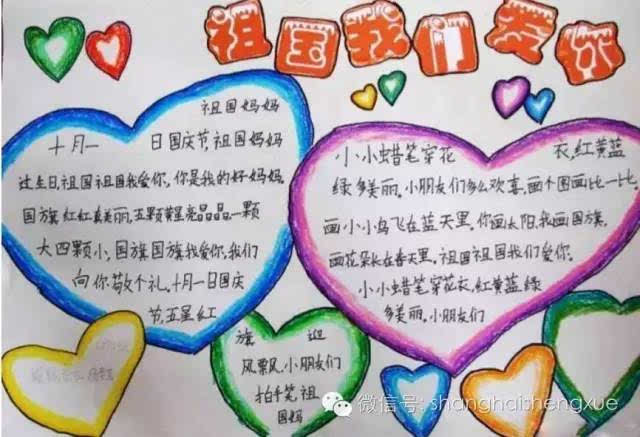 祖国我们爱你
祖国妈妈
十月一 日国庆节,祖国妈妈
过生日,祖国祖国我爱你,你是我的好妈妈,
国旗红红真美丽,五颗黄星亮晶晶,一颗
大四颗小,国旗国旗我爱你,我们
向你敬个礼,十月一日国庆
节,五星红
旗 迎
风飘风,小朋友们
拍手笑祖
国妈
小小蜡笔穿花 衣,红黄蓝
绿多美丽,小朋友们多么欢喜,画个图画比一比,
画小小鸟飞在蓝天里,你画太阳,我画国旗,
画花朵长在春天里,祖国祖国我们爱你。
小小蜡笔穿花衣,红黄蓝绿
多美丽,小朋友们
微信号: shanghaishengxue